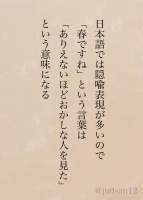 日本語では隠喩表現が多いので
「春ですね」という言葉は
「ありえないほどおかしな人を見た」
という意味になる
@judsan12